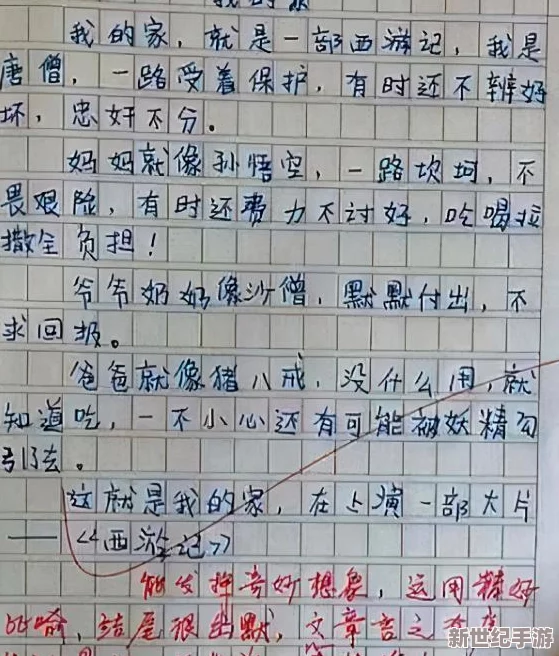 我的家
我的家，就是一部西游记，我是
唐僧，一路受着保护，有时还不辨好
坏，忠奸不分。
妈妈就像孙悟空，一路坎坷，不
畏艰险，有时还费力不讨好，吃喝拉
撒全负担！
爷爷奶奶像沙僧，默默付出，不
求回报。
爸爸就像猪八戒，没什么用，就
知道吃，一不小心还有可能被妖精勾
引去。
这就是我的家，在上演一部大片
——《西游记》
能发挥奇妙想象，运用精妙
比喻，结尾很幽默，文章言之有
新世纪手游